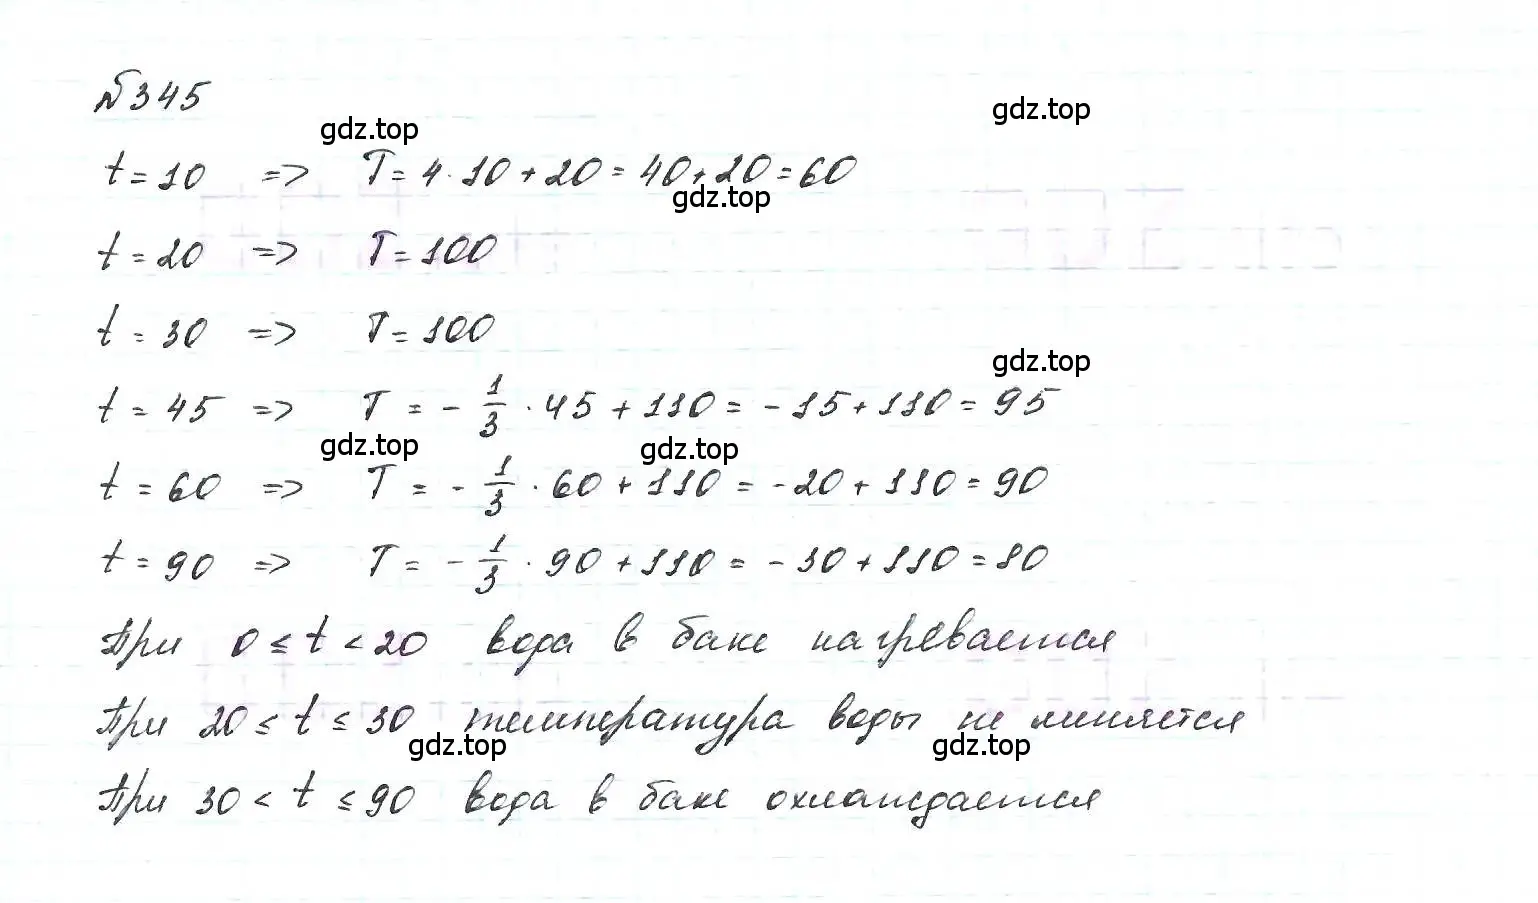 №345
gdz.top
gdz.top
t = 10 => T = 4 · 10 + 20 = 40 + 20 = 60
gdz.top
t = 20 => T = 100
t = 30 => T = 100
gdz.top
t = 45 => T = - 1/3 · 45 + 110 = - 15 + 110 = 95
gdz.top
gdz.top
t = 60 => T = - 1/3 · 60 + 110 = - 20 + 110 = 90
t = 90 => T = - 1/3 · 90 + 110 = - 30 + 110 = 80
При 0 ≤ t < 20 вода в баке нагревается
При 20 ≤ t ≤ 30 температура воды не меняется
gdz.top
gdz.top
При 30 < t ≤ 90 вода в баке охлаждается